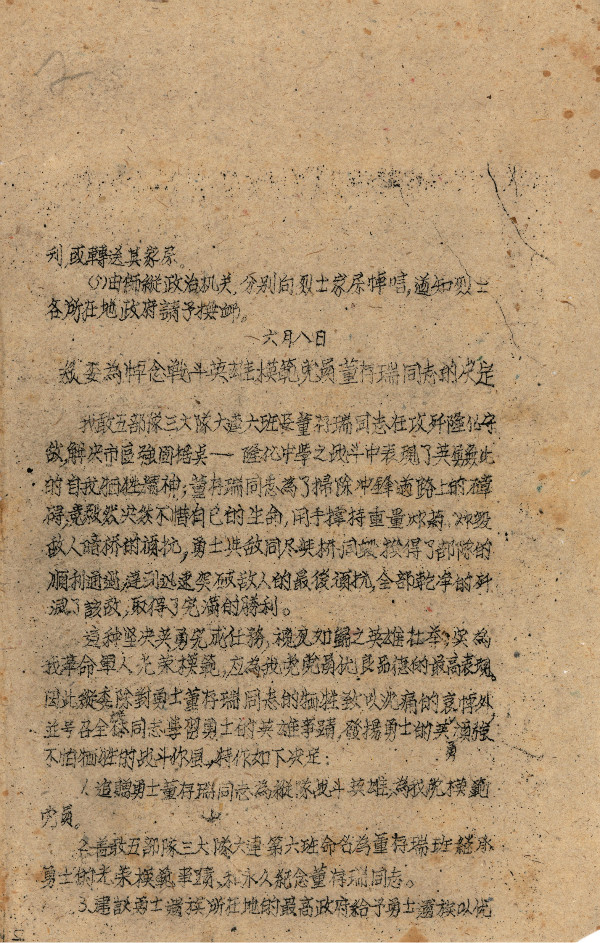 2
利,或轉送其家屬。
(5)由師縱政治机关,分别向烈士家屬悼唁,通知烈士
各所在地政府請予撫卹。
六月八日
縱委為悼念戰斗英雄模範党員董存瑞同志的决定
我敢五部隊三大隊六連六班長董存瑞同志在攻歼隆化守
敌,解决市區強固據点——隆化中學之战斗中表現了英勇無比
的自我牺牲精神;董存瑞同志為了掃除冲鋒道路上的障
碍,竟毅然决然不惜自己的生命,用手撑持重量炸葯,炸毀
敌人暗桥的頑抗,勇士与敌同尽
順利通過,達到迅速突破敌人的最後頑抗,全部乾净的歼
滅了該敌,取得了完滿的勝利。
這种坚决英勇完成任務,視死如歸之英雄壮舉,实為
我革命軍人光荣模範,應為我党党員优良品德的最高表現。
因此縱委除對勇士董存瑞同志的牺牲致以沉痛的哀悼外
並号召全体同志學習勇士的英雄事蹟,發揚勇士的英勇頑强
不怕牺牲的战斗作風,特作如下决定:
1.追贈勇士董存瑞同志為縱隊战斗英雄,為我党模範
党員。
2.善敢五部隊三大隊六連第六班命名為董存瑞班繼承
勇士的光荣模範事蹟,和永久紀念董存瑞同志。
3.建議勇士遺族所在地的最高政府給予勇士遺族以优